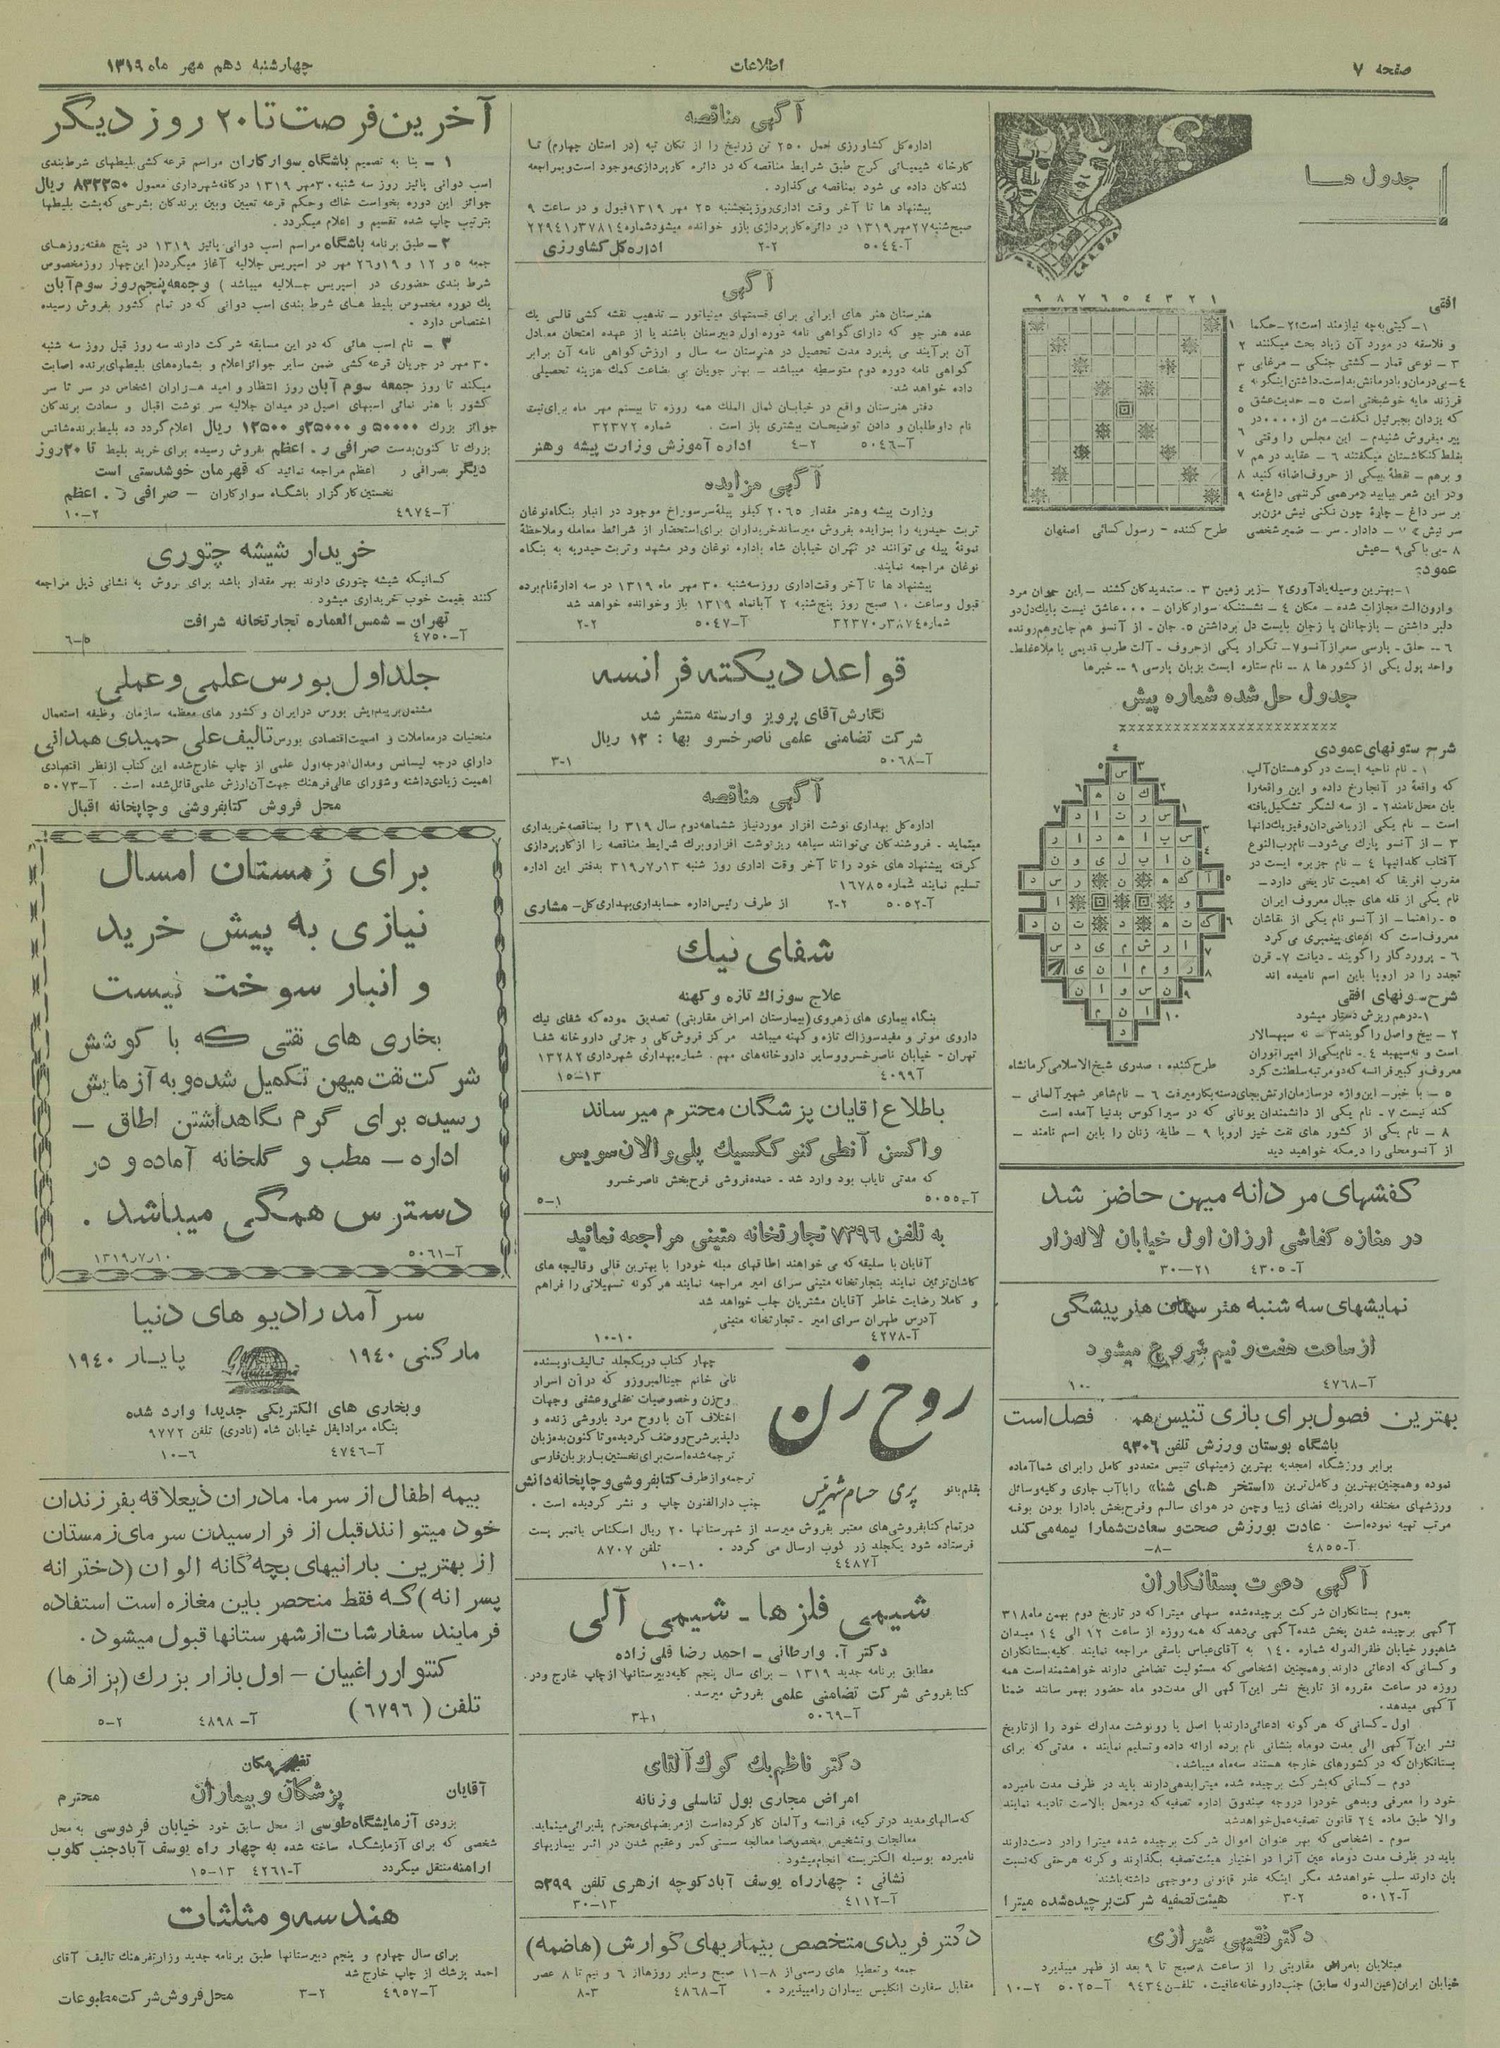 صفحه ۷
اطلاعات
چهارشنبه دهم مهر ماه ۱۳۱۹
جدول ها
۱ ۲ ۳ ۴ ۵ ۶ ۷ ۸ ۹
افقی
۱- گیتی به چه نیازمند است؟ ۲- حکما
و فلاسفه در مورد آن زیاد بحث میکنند
۳ - نوعی قمار - کشتی جنگی - مرغابی
فرزند مایه خوشبختی است ۵- حدیث عشق
که یزدان بجبرئیل نگفت- من از ۰۰۰۰ در
پیر میفروش شنیدم - این مجلس را وقتی
بغلط کنکاشستان میگفتند ۶ - عقاید در هم
و برهم - نقطه بیکی از حروف اضافه کنید
طرح کننده - رسول کسائی اصفهان
۸- بی باکی ۹ - عیش
عمودی
۱- بهترین وسیله یادآوری ۲- زیر زمین ۳ - ستمدیدگان کشند - این حیوان مرد
دلبر داشتن - بازجانان یا زجان بایست دل برداشتن ۵- جان - از آنسو هم جان وهم رونده
واحد پول یکی از کشور ها ۸ - نام ستاره ایست بزبان پارسی ۹ - خبرها
جدول حل شده شماره پیش
شرح ستونهای عمودی
۱ - نام ناحیه ایست در کوهستان آلپ
که واقعهٔ در آنجا رخ داده و این واقعه را
بان محل نامند ۲ - از سه لشگر تشکیل یافته
است - نام یکی از ریاضی دان و فیزیک دانها
۳ - از آنسو پارک می‌شود- نام رب النوع
آفتاب کلدانیها ۴ - نام جزیره ایست در
مغرب افریقا که اهمیت تاریخی دارد -
نام یکی از قله های جبال معروف ایران
۵ - راهنما - از آنسو نام یکی از نقاشان
معروف است که ادعای پیغمبری می کرد
۶ - پروردگار را گویند - دیانت ۷- قرن
تجدد را در اروپا باین اسم نامیده اند
شرح ستونهای افقی
۱- درهم ریزش دستار میشود
۲ - بیخ واصل را گویند ۳- نه سپهسالار
است و نه سپهبد ۴ - نام یکی از امپراتوران
معروف و کبیر فرانسه که دو مرتبه سلطنت کرد
طرح کننده : صدری شیخ الاسلامی کرمانشاه
۵ - با خبر - این واژه در سازمان ارتش بجای دسته بکار میرفت ۶ - نام شاعر شهیر آلمانی -
کند نیست ۷ - نام یکی از دانشمندان یونانی که در سیراکوس بدنیا آمده است
۸ - نام یکی از کشور های نفت خیز اروپا ۹ - طایفه زنان را باین اسم نامند -
از آنسو محلی را در مکه خواهید دید
کفشهای مردانه میهن حاضر شد
در مغازه کفاشی ارزان اول خیابان لاله‌زار
آ-۴۳۰۵ ۲۱-۳۰
نمایشهای سه شنبه هنرستان هنرپیشگی
از ساعت هفت و نیم شروع میشود
آ-۴۷۶۸ ۱۰-
بهترین فصول برای بازی تنیس همین فصل است
باشگاه بوستان ورزش تلفن ۹۳۰۶
برابر ورزشگاه امجدیه بهترین زمینهای تنیس متعدد و کامل را برای شما آماده
نموده و همچنین بهترین و کاملترین «استخر های شنا» را با آب جاری و کلیه وسائل
ورزشهای مختلفه را در یک فضای زیبا و چمن در هوای سالم و فرح‌بخش بادارا بودن بوفه
مرتب تهیه نموده است ۰ عادت بورزش صحت و سعادت شمارا بیمه می کند
آ-۴۸۵۵ -۸-
آگهی دعوت بستانکاران
بعموم بستانکاران شرکت برچیده شده سهامی میترا که در تاریخ دوم بهمن ماه ۳۱۸
آگهی برچیده شدن پخش شده آگهی می‌دهد که همه روزه از ساعت ۱۲ الی ۱۴ میدان
شاهپور خیابان ظفرالدوله شماره ۱۴۰ به آقای عباس یاسقی مراجعه نمایند کلیه بستانکاران
و کسانی که ادعائی دارند و همچنین اشخاصی که مسئولیت تضامنی دارند خواهشمند است همه
روزه در ساعت مقرره از تاریخ نشر این آگهی الی مدت دو ماه حضور بهم رسانند ضمنا
آگهی میدهد.
اول - کسانی که هرگونه ادعائی دارند با اصل یا رونوشت مدارک خود را از تاریخ
نشر این آگهی الی مدت دو ماه بنشانی نام برده ارائه داده و تسلیم نمایند ۰ مدتی که برای
بستانکاران که در کشورهای خارجه هستند سه ماه میباشد.
دوم - کسانی که بشرکت برچیده شده میترا بدهی دارند باید در ظرف مدت نامبرده
خود را معرفی و بدهی خود را در وجه صندوق اداره تصفیه که در محل بالاست تادیه نمایند
والا طبق ماده ۲۴ قانون تصفیه عمل خواهد شد
سوم - اشخاصی که بهر عنوان اموال شرکت برچیده شده میترا را در دست دارند
باید در ظرف مدت دو ماه عین آنرا در اختیار هیئت تصفیه بگذارند و گرنه هر حقی که نسبت
بان دارند سلب خواهد شد مگر اینکه عذر قانونی و موجهی داشته باشند
آ-۵۰۱۲ ۲-۳ هیئت تصفیه شرکت برچیده شده میترا
دکتر فقیهی شیرازی
مبتلایان بامراض مقاربتی را از ساعت ۸ صبح تا ۹ بعد از ظهر میپذیرد
خیابان ایران (عین الدوله سابق) جنب داروخانه عافیت ۰ تلفن ۹۴۳۴ آ-۵۰۲۵ ۲-۱۰
آگهی مناقصه
اداره کل کشاورزی حمل ۲۵۰ تن زرنیخ را از تکان تپه (در استان چهارم) تا
کارخانه شیمیائی کرج طبق شرایط مناقصه که در دائره کارپردازی موجود است و بمراجعه
کنندگان داده می شود بمناقصه می‌گذارد .
پیشنهاد ها تا آخر وقت اداری روز پنجشنبه ۲۵ مهر ۱۳۱۹ قبول و در ساعت ۹
صبح شنبه ۲۷ مهر ۱۳۱۹ در دائره کارپردازی بازو خوانده میشود شماره ۲۲۹۴۱/۳۷۸۱۴
آ-۵۰۴۴ ۲-۲ اداره کل کشاورزی
آگهی
هنرستان هنر های ایرانی برای قسمتهای مینیاتور - تذهیب نقشه کشی قالی یک
عده هنر جو که دارای گواهی نامه دوره اول دبیرستان باشند یا از عهده امتحان معادل
آن برآیند می پذیرد مدت تحصیل در هنرستان سه سال و ارزش گواهی نامه آن برابر
گواهی نامه دوره دوم متوسطه میباشد - بهنر جویان بی بضاعت کمک هزینه تحصیلی
داده خواهد شد.
دفتر هنرستان واقع در خیابان کمال الملک همه روزه تا بیستم مهر ماه برای ثبت
نام داوطلبان و دادن توضیحات بیشتری باز است . شماره ۳۲۳۷۲
آ-۵۰۴۶ ۲-۴ اداره آموزش وزارت پیشه و هنر
آگهی مزایده
وزارت پیشه وهنر مقدار ۲۰۶۵ کیلو پیله سرسوراخ موجود در انبار بنگاه نوغان
تربت حیدریه را بمزایده بفروش میرساند خریداران برای استحضار از شرائط معامله و ملاحظهٔ
نمونهٔ پیله می توانند در تهران خیابان شاه باداره نوغان و در مشهد و تربت حیدریه به بنگاه
نوغان مراجعه نمایند.
پیشنهاد ها تا آخر وقت اداری روز سه شنبه ۳۰ مهر ماه ۱۳۱۹ در سه اداره نامبرده
قبول و ساعت ۱۰ صبح روز پنج شنبه ۲ آبانماه ۱۳۱۹ باز و خوانده خواهد شد
شماره ۳۲۳۷۰ر۳۸۷۴ آ-۵۰۴۷ ۲-۲
قواعد دیکته فرانسه
نگارش آقای پرویز وارسته منتشر شد
شرکت تضامنی علمی ناصرخسرو بها : ۱۲ ریال
آ-۵۰۶۸ ۱-۳
آگهی مناقصه
اداره کل بهداری نوشت افزار مورد نیاز ششماهه دوم سال ۳۱۹ را بمناقصه خریداری
مینماید - فروشندگان می‌توانند سیاهه ریز نوشت افزار و برگ شرایط مناقصه را از کارپردازی
گرفته پیشنهاد های خود را تا آخر وقت اداری روز شنبه ۳۱۹ر۷ر۱۳ بدفتر این اداره
تسلیم نمایند شماره ۱۶۷۸۵
آ-۵۰۵۲ ۲-۲ از طرف رئیس اداره حسابداری بهداری کل - مشاری
شفای نیک
علاج سوزاک تازه و کهنه
بنگاه بیماری های زهروی (بیمارستان امراض مقاربتی) تصدیق نموده که شفای نیک
داروی موثر و مفید سوزاک تازه و کهنه میباشد مرکز فروش کلی و جزئی داروخانه شفا
تهران - خیابان ناصرخسرو و سایر داروخانه‌های مهم . شماره بهداری شهرداری ۱۳۲۸۲
آ۴۰۹۹ ۱۳-۱۵
باطلاع آقایان پزشگان محترم میرساند
واکسن آنطی گنوککسیک پلی والان سویس
که مدتی نایاب بود وارد شد . عمده فروشی فرح‌بخش ناصرخسرو
آ-۵۰۵۵ ۱-۵
به تلفن ۷۳۹۶ تجارتخانه متینی مراجعه نمائید
آقایان با سلیقه که می خواهند اطاقهای مبله خود را با بهترین قالی و قالیچه های
کاشان تزئین نمایند بتجارتخانه متینی سرای امیر مراجعه نمایند هرگونه تسهیلاتی را فراهم
و کاملا رضایت خاطر آقایان مشتریان جلب خواهد شد
آدرس طهران سرای امیر - تجارتخانه متینی
آ-۴۲۷۸ ۱۰-۱۰
روح زن
بقلم بانو پری حسام شهرئیس
چهار کتاب در یکجلد تالیف نویسنده
نامی خانم جینالمبروزو که در آن اسرار
روح زن و خصوصیات عقلی و عشقی و جهات
اختلاف آن با روح مرد باروشی زنده و
دلپذیر شرح و وصف گردیده و تا کنون بده زبان
ترجمه شده است برای نخستین بار بزبان فارسی
ترجمه و از طرف کتابفروشی و چاپخانه دانش
جنب دارالفنون چاپ و نشر گردیده است .
در تمام کتابفروشی‌های معتبر بفروش میرسد از شهرستانها ۲۰ ریال اسکناس یا تمبر پست
فرستاده شود یکجلد زر کوب ارسال می گردد ۰ تلفن ۸۷۰۷
آ۴۴۸۷ ۱۰-۱۰
شیمی فلزها - شیمی آلی
دکتر آ. وارطانی - احمد رضا قلی زاده
مطابق برنامه جدید ۱۳۱۹ - برای سال پنجم کلیه دبیرستانها از چاپ خارج و در
کتابفروشی شرکت تضامنی علمی بفروش میرسد.
آ-۵۰۶۹ ۱+۳
دکتر ناظم بک گوک آلتای
امراض مجاری بول تناسلی و زنانه
که سالهای مدید در ترکیه، فرانسه و آلمان کار کرده است از مریضهای محترم پذیرائی مینماید.
معالجات و تشخیص مخصوصا معالجه سستی کمر و عقیم شدن در اثر بیماریهای
نامبرده بوسیله الکتریسته انجام میشود.
نشانی : چهارراه یوسف آباد کوچه ازهری تلفن ۵۲۹۹
آ-۴۱۱۲ ۱۳-۳۰
دکتر فریدی متخصص بیماریهای گوارش (هاضمه)
جمعه و تعطیل های رسمی از ۸-۱۱ صبح و سایر روزها از ۶ و نیم تا ۸ عصر
مقابل سفارت انگلیس بیماران را میپذیرد ۰ آ-۴۸۶۸ ۳-۸
آخرین فرصت تا ۲۰ روز دیگر
۱ - بنا به تصمیم باشگاه سوارکاران مراسم قرعه کشی بلیطهای شرط بندی
اسب دوانی پائیز روز سه شنبه ۳۰ مهر ۱۳۱۹ در کافه شهرداری معمول ۸۳۲۲۵۰ ریال
جوائز این دوره بخواست خدا و حکم قرعه تعیین و بین برندگان بشرحی که پشت بلیطها
بترتیب چاپ شده تقسیم و اعلام میگردد .
۲ - طبق برنامه باشگاه مراسم اسب دوانی پائیز ۱۳۱۹ در پنج هفته روزهای
جمعه ۵ و ۱۲ و ۱۹ و ۲۶ مهر در اسپریس جلالیه آغاز میگردد (این چهار روز مخصوص
شرط بندی حضوری در اسپریس جلالیه میباشد ) و جمعه پنجم روز سوم آبان
یک دوره مخصوص بلیط های شرط بندی اسب دوانی که در تمام کشور بفروش رسیده
اختصاص دارد .
۳ - نام اسب هائی که در این مسابقه شرکت دارند سه روز قبل روز سه شنبه
۳۰ مهر در جریان قرعه کشی ضمن سایر جوائز اعلام و بشماره‌های بلیطهای برنده اصابت
میکند تا روز جمعه سوم آبان روز انتظار و امید هزاران اشخاص در سر تا سر
کشور با هنر نمائی اسبهای اصیل در میدان جلالیه سر نوشت اقبال و سعادت برندگان
جوائز بزرک ۵۰۰۰۰ و ۲۵۰۰۰ و ۱۲۵۰۰ ریال اعلام گردد ده بلیط برنده شانس
بزرک تا کنون بدست صرافی ر . اعظم بفروش رسیده برای خرید بلیط تا ۲۰ روز
دیگر بصرافی ر اعظم مراجعه نمائید که قهرمان خوشدستی است
نخستین کارگزار باشگاه سوارکاران - صرافی ر . اعظم
آ-۴۹۷۴ ۲-۱۰
خریدار شیشه چتوری
کسانیکه شیشه چتوری دارند بهر مقدار باشد برای فروش به نشانی ذیل مراجعه
کنند بقیمت خوب خریداری میشود.
تهران - شمس العماره تجارتخانه شرافت
آ-۴۷۵۰ ۵-۶
جلد اول بورس علمی و عملی
مشتمل بر پیدایش بورس در ایران و کشور های معظمه سازمان، وظیفه استعمال
منحنیات در معاملات و اهمیت اقتصادی بورس تالیف علی حمیدی همدانی
دارای درجه لیسانس و مدال درجه اول علمی از چاپ خارج شده این کتاب از نظر اقتصادی
اهمیت زیادی داشته و شورای عالی فرهنگ جهت آن ارزش علمی قائل شده است . آ-۵۰۷۳
محل فروش کتابفروشی و چاپخانه اقبال
برای زمستان امسال
نیازی به پیش خرید
و انبار سوخت نیست
بخاری های نفتی که با کوشش
شرکت نفت میهن تکمیل شده و به آزمایش
رسیده برای گرم نگاهداشتن اطاق -
اداره - مطب و گلخانه آماده و در
دسترس همگی میباشد .
آ-۵۰۶۱ ۱۳۱۹ر۷ر۱۰
سر آمد رادیو های دنیا
مارکنی ۱۹۴۰ پایلر ۱۹۴۰
و بخاری های الکتریکی جدیدا وارد شده
بنگاه مرادایفل خیابان شاه (نادری) تلفن ۹۷۷۲
آ-۴۷۴۶ ۶-۱۰
بیمه اطفال از سرما. مادران ذیعلاقه بفرزندان
خود میتوانند قبل از فرا رسیدن سرمای زمستان
از بهترین بارانیهای بچه گانه الوان (دخترانه
پسرانه) که فقط منحصر باین مغازه است استفاده
فرمایند سفارشات از شهرستانها قبول میشود.
کنتوار راغبیان - اول بازار بزرک (بزازها)
تلفن (۶۷۹۶) آ- ۴۸۹۸ ۲-۵
تغییر مکان
آقایان پزشگان و بیماران محترم
بزودی آزمایشگاه طوسی از محل سابق خود خیابان فردوسی به محل
شخصی که برای آزمایشگاه ساخته شده به چهار راه یوسف آباد جنب کلوب
ارامنه منتقل میگردد آ-۴۲۶۱ ۱۳-۱۵
هندسه و مثلثات
برای سال چهارم و پنجم دبیرستانها طبق برنامه جدید وزارت فرهنک تالیف آقای
احمد پزشک از چاپ خارج شد
آ-۴۹۵۷ ۲-۳ محل فروش شرکت مطبوعات